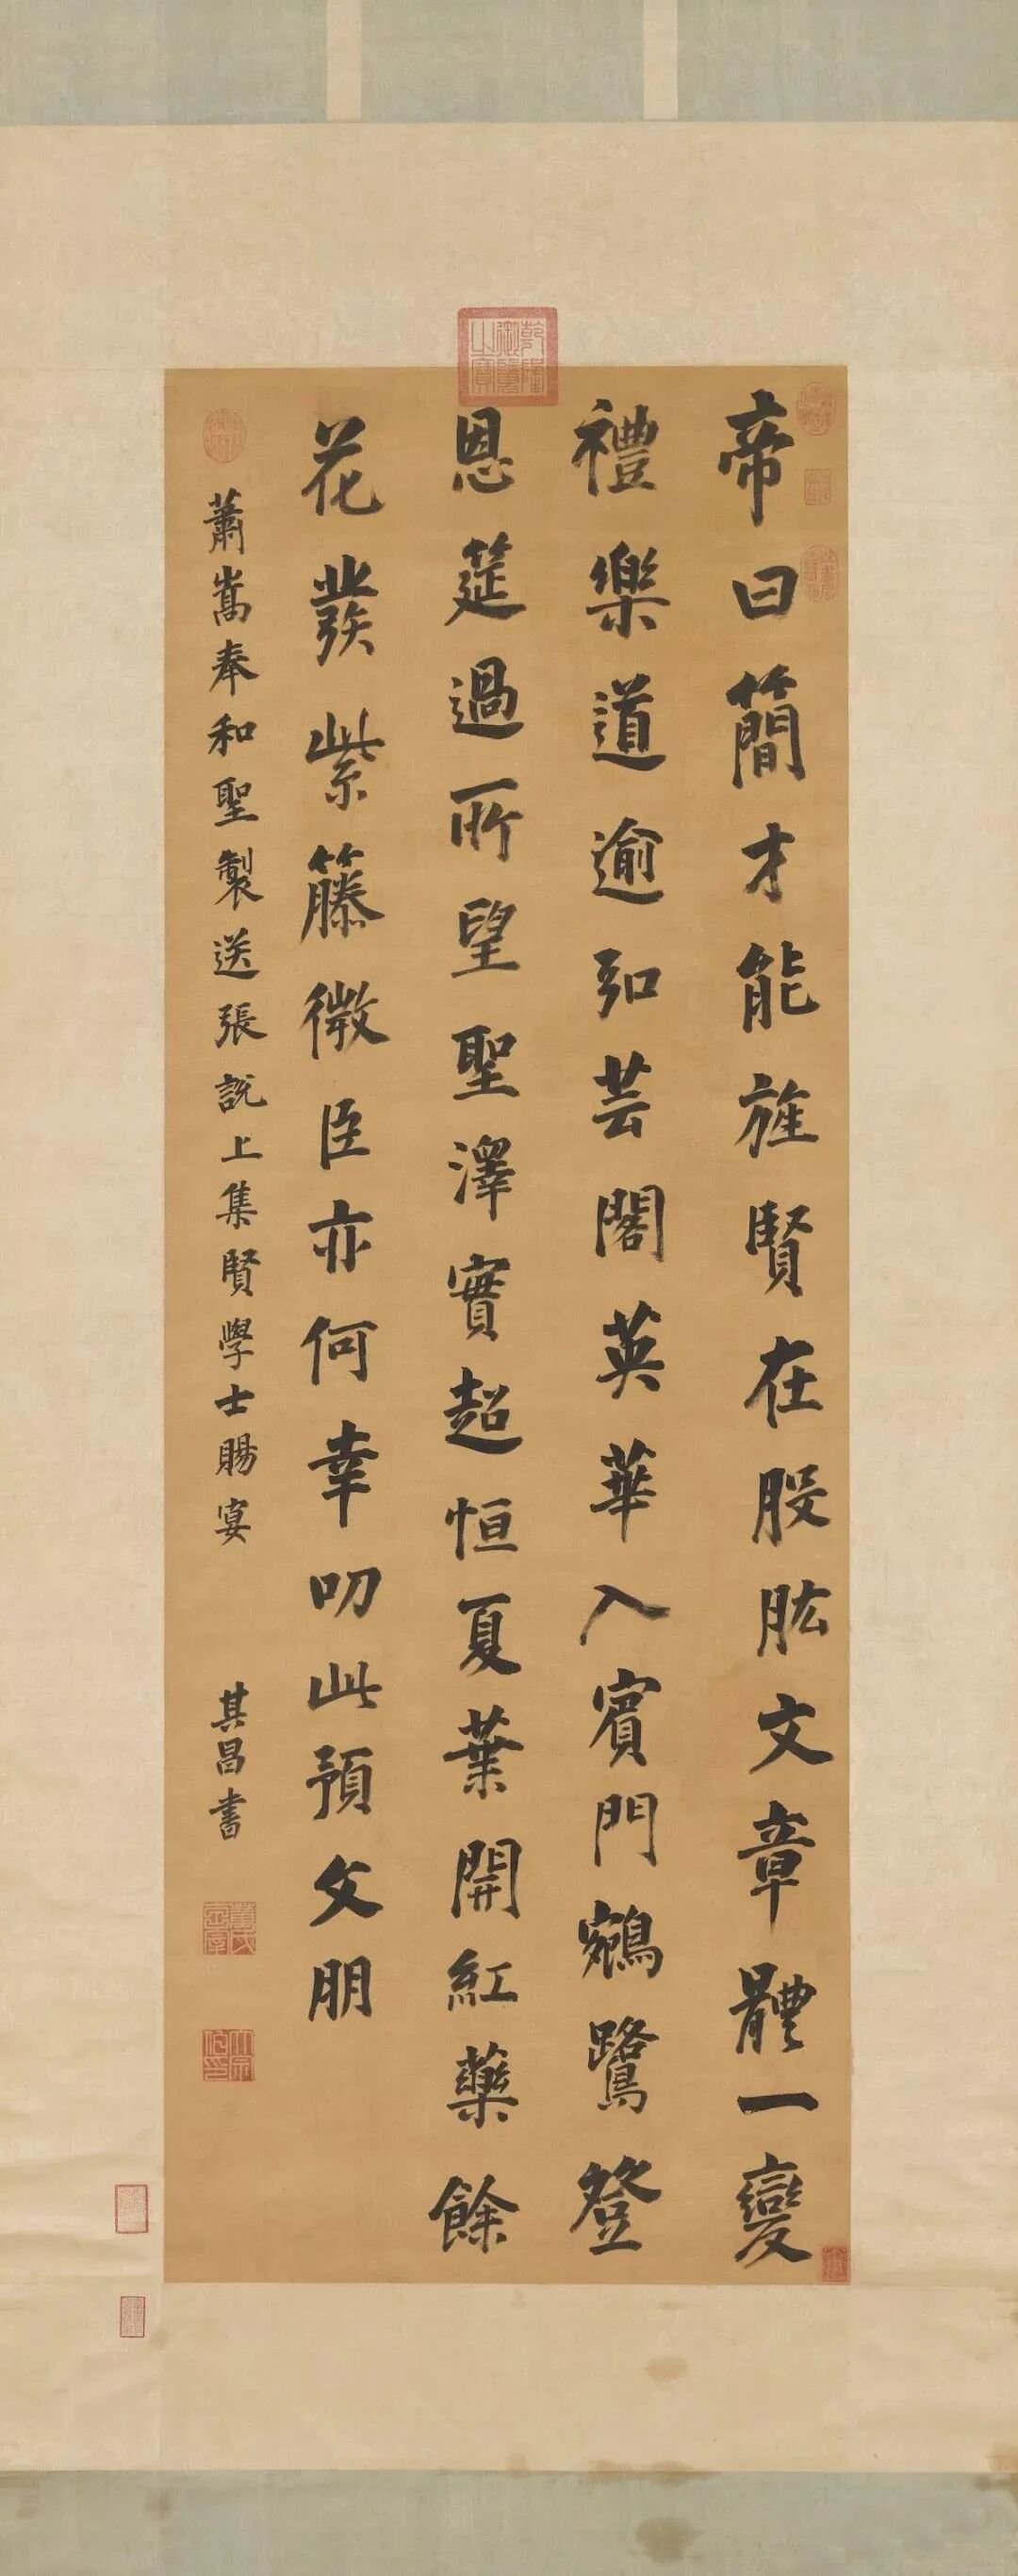 帝曰簡才能旌賢在股肱文章體一變
禮樂道逾弘芸閣英華入賓門鵷鷺登
恩筵過所望聖澤實超恒夏葉開紅藥餘
花發紫籐微臣亦何幸叨此預文朋
蕭嵩奉和聖製送張說上集賢學士賜宴 其昌書
乾隆御覽之寶